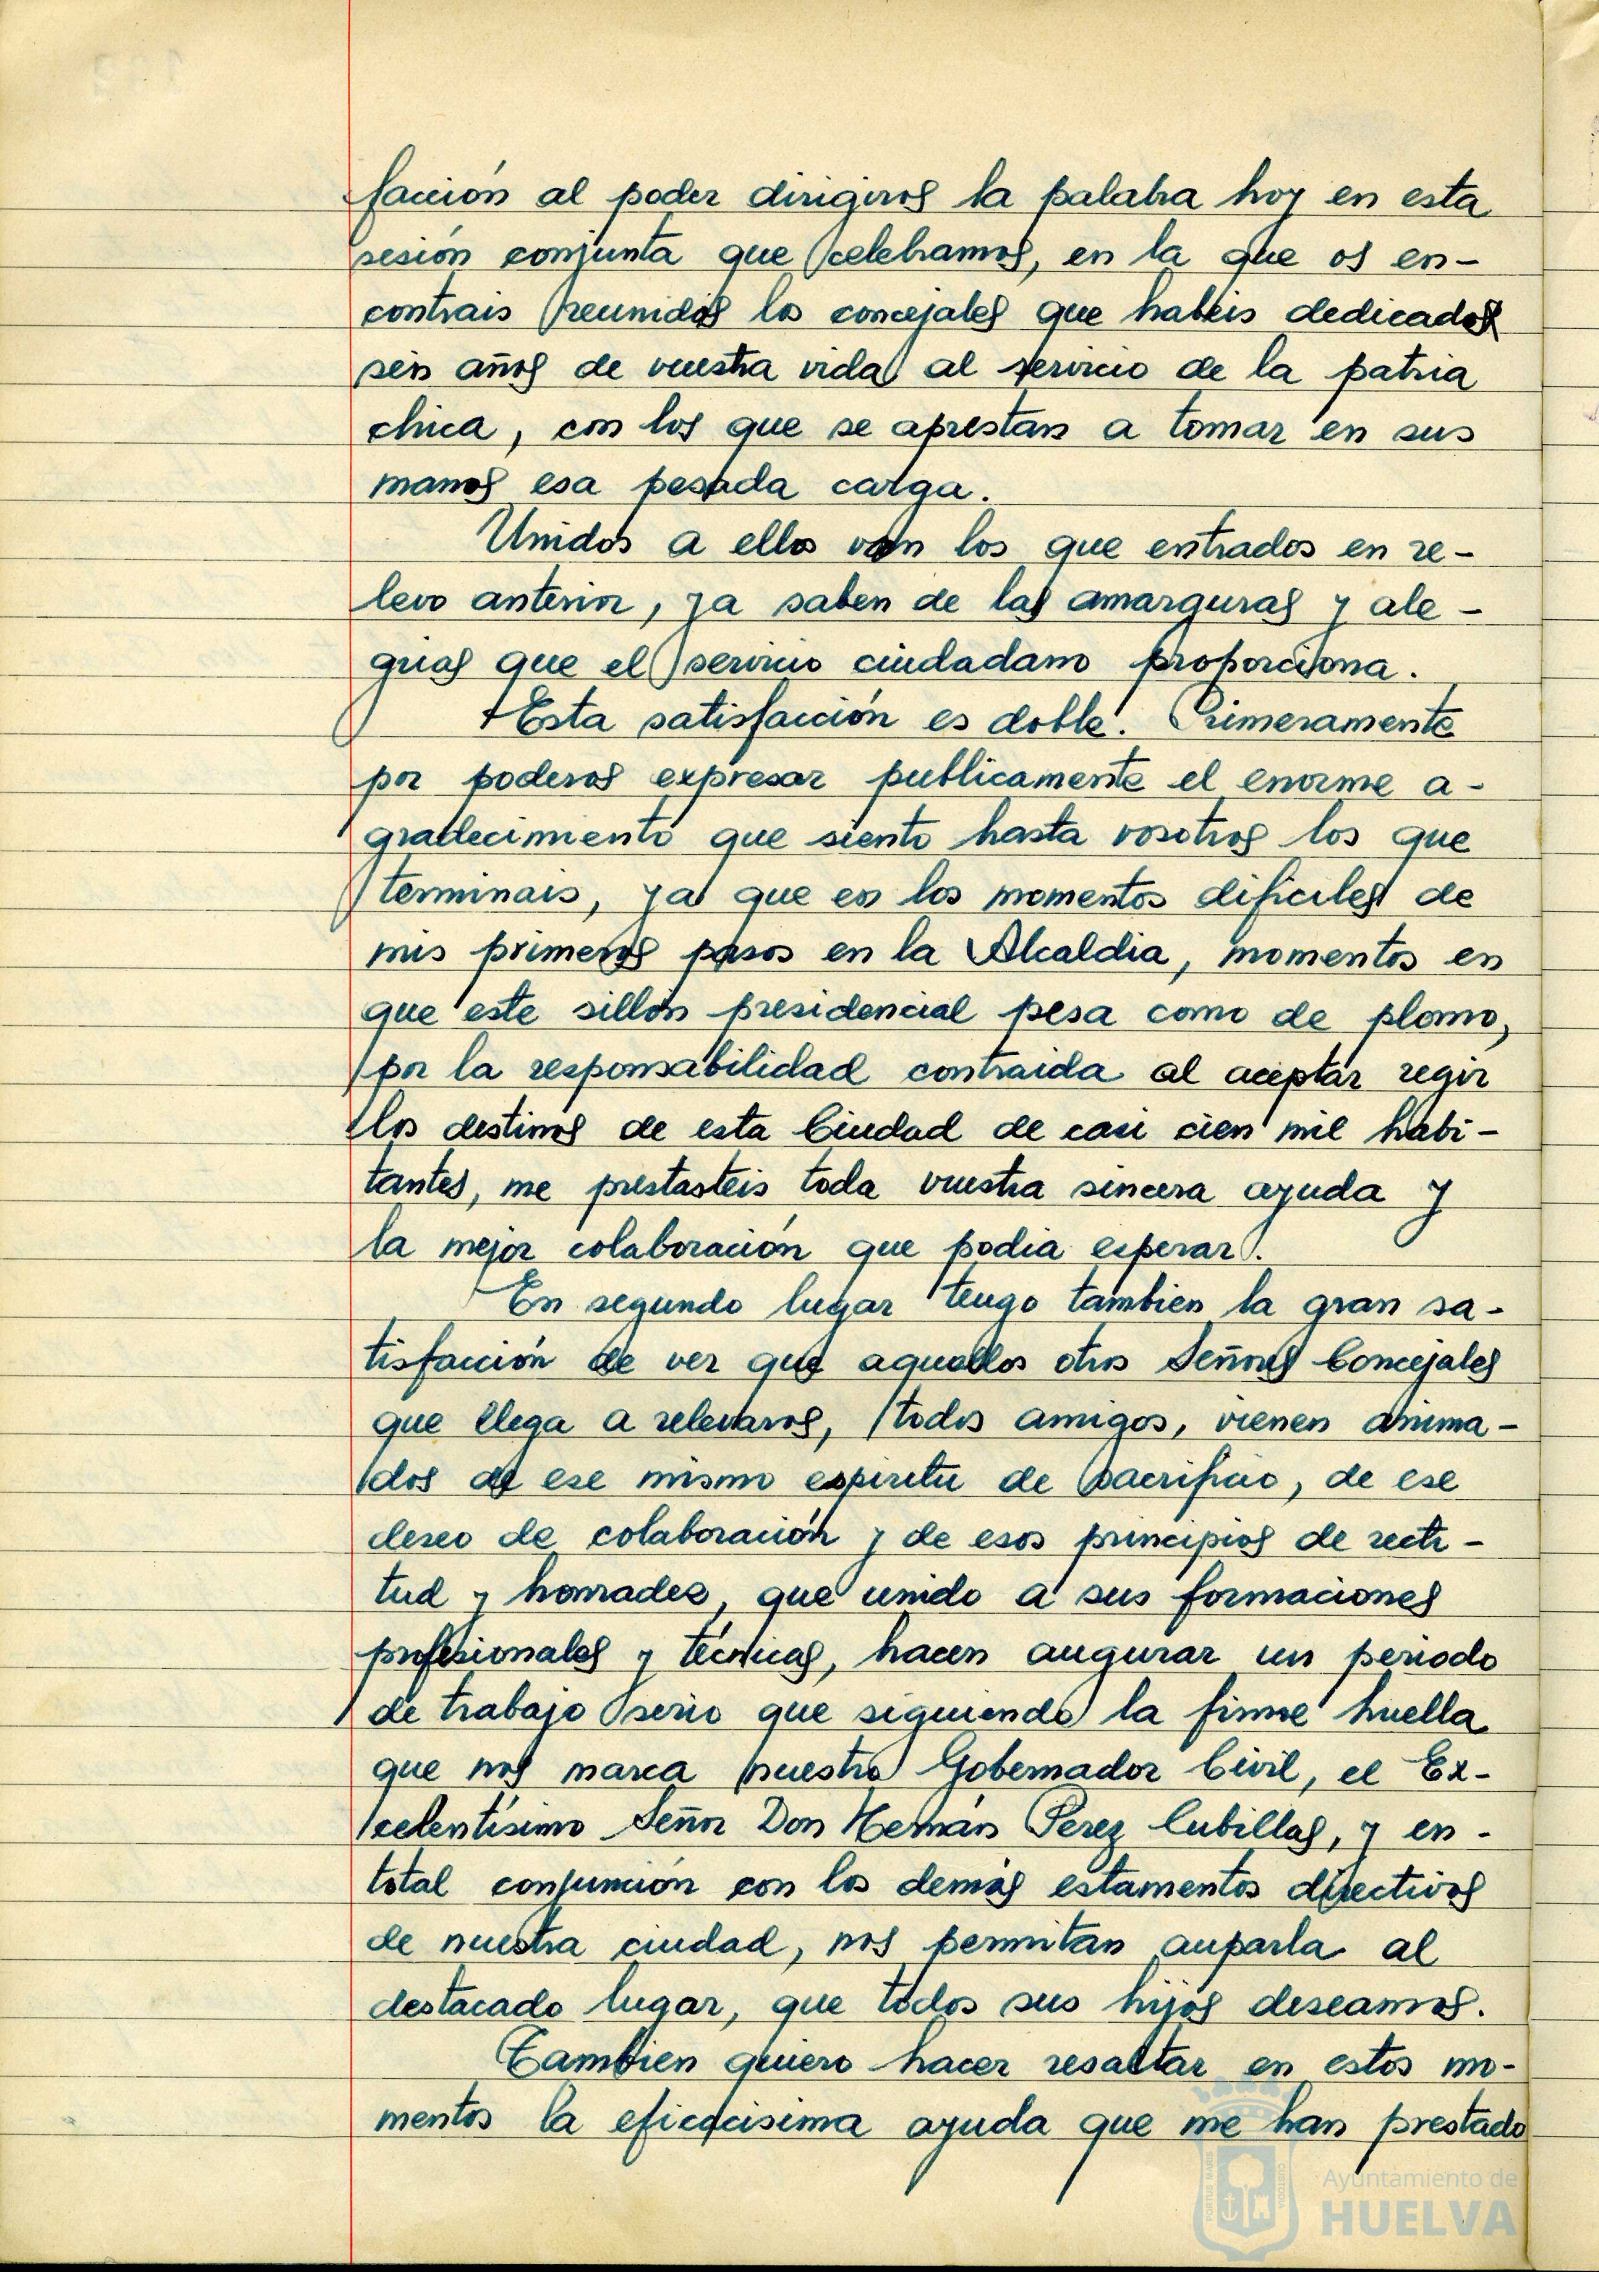 facción al poder dirigiros la palabra hoy en esta
sesión conjunta que celebramos, en la que os en-
contrais reunidos los concejales que habeis dedicados
seis años de vuestra vida al servicio de la patria
chica, con los que se aprestan a tomar en sus
manos esa pesada carga.
Unidos a ellos van los que entrados en re-
levo anterior, ya saben de las amarguras y ale-
grias que el servicio ciudadano proporciona.
Esta satisfacción es doble. Primeramente
por poderos expresar publicamente el enorme a-
gradecimiento que siento hasta vosotros los que
terminais, ya que en los momentos dificiles de
mis primeros pasos en la Alcaldia, momentos en
que este sillón presidencial pesa como de plomo,
por la responsabilidad contraida al aceptar regir
los destinos de esta Ciudad de casi cien mil habi-
tantes, me prestasteis toda vuestra sincera ayuda y
la mejor colaboración que podia esperar.
En segundo lugar tengo tambien la gran sa-
tisfacción de ver que aquellos otros Señores Concejales
que llega a relevaros, todos amigos, vienen anima-
dos de ese mismo espiritu de sacrificio, de ese
deseo de colaboración y de esos principios de recti-
tud y honradez, que unido a sus formaciones
profesionales y técnicas, hacen augurar un periodo
de trabajo serio que siguiendo la firme huella
que nos marca nuestro Gobernador Civil, el Ex-
celentísimo Señor Don Hernán Perez Cubillas, y en-
total conjunción con los demás estamentos directivos
de nuestra ciudad, nos permitan auparla al
destacado lugar, que todos sus hijos deseamos.
Tambien quiero hacer resaltar en estos mo-
mentos la eficacisima ayuda que me han prestado
PORTUS MARIS
CUSTODIA
Ayuntamiento de
HUELVA